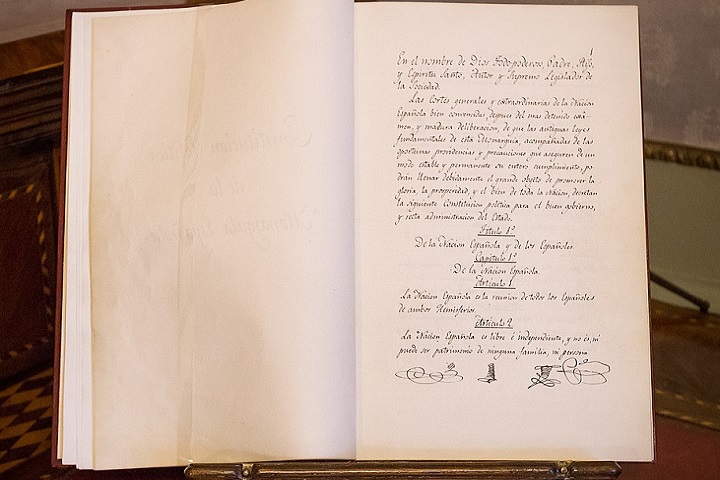 1
En el nombre de Dios Todo-poderoso, Padre, Hijo,
y Espiritu Santo, Autor y Supremo Legislador de
la Sociedad.
Las Cortes generales y extraordinarias de la Nacion
Española bien convencidas, despues del mas detenido exâ-
men, y madura deliberacion, de que las antiguas leyes
fundamentales de esta Monarquia, acompañadas de las
oportunas providencias y precauciones que aseguren de un
modo estable y permanente su entero cumplimiento, po-
drán llenar debidamente el grande objeto de promover la
gloria, la prosperidad, y el bien de toda la Nacion, decretan
la siguiente Constitucion politica para el buen gobierno,
y recta administracion del Estado.
Titulo 1º
De la Nacion Española y de los Españoles.
Capitulo 1º
De la Nacion Española.
Articulo 1
La Nacion Española es la reunion de todos los Españoles
de ambos Hemisferios.
Articulo 2
La Nacion Española es libre é independiente, y no es, ni
puede ser patrimonio de ninguna familia, ni persona